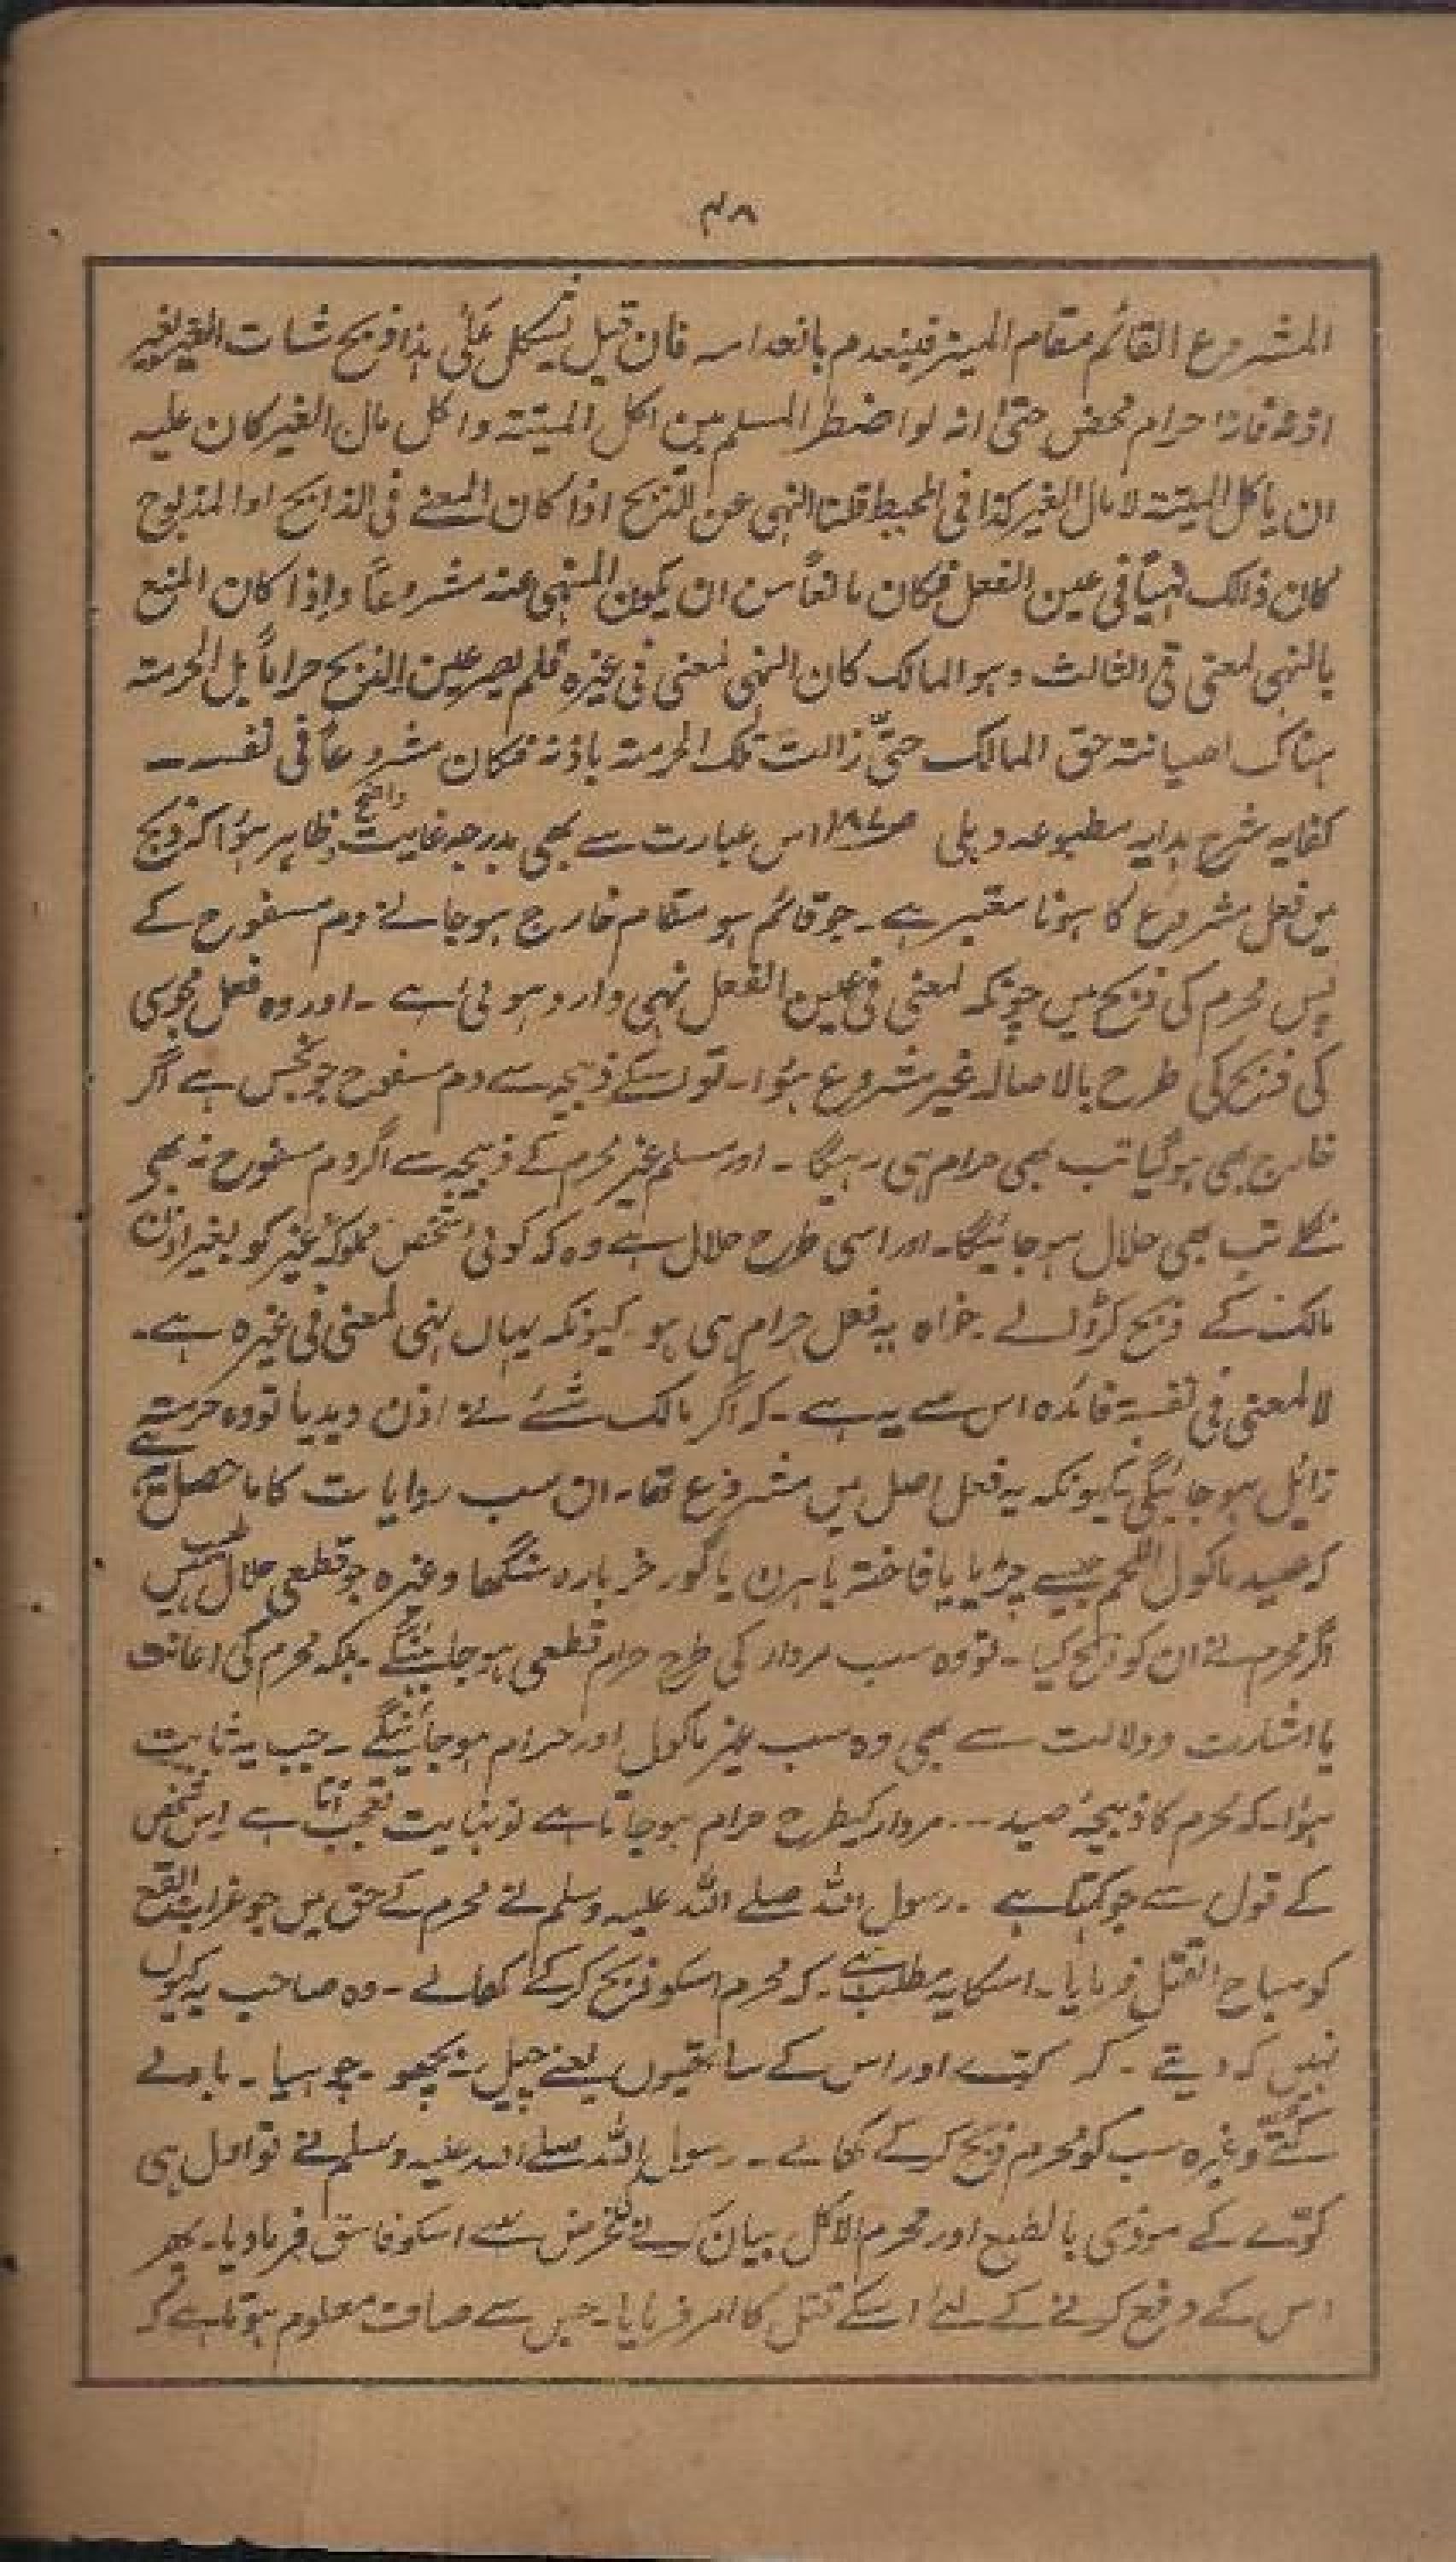 ۴۸
المشروع القائم مقام المیز فینعدم بانعدامہ فان قیل یشکل علیٰ ہذا ذبح شات الغیر بغیر
اذنہ فانہ حرام محض حتیٰ انہ لو اضطر المسلم بین اکل المیتتہ و اکل مال الغیر کان علیہ
ان یاکل المیتتہ لا مال الغیر کذا فی المحیط قلنا النہی عن الذبح اذا کان المعنے فی الذابح او المذبوح
کان ذلک نہیاً فی عین الفعل فکان مانعاً من ان یکون المنہی عنہ مشروعاً و اذا کان المنع
بالنہی لمعنی فی الثالث وہو المالک کان النہی لمعنی فی غیرہ فلم یصر عین الذبح حراماً بل الحرمتہ
ہناک لصیانتہ حق المالک حتیّٰ زالت تلک الحرمتہ باذنہ فکان مشروعاً فی نفسہ
کفایہ شرح ہدایہ مطبوعہ دہلی اس عبارت سے بھی بدرجہ غایت واضح و ظاہر ہؤا کہ ذبح
میں فعل مشروع کا ہونا معتبر ہے۔ جو قائم ہو مقام خارج ہو جانے دم مسفوح کے
پس محرم کی ذبح میں چونکہ لمعنی فی عین الفعل نہی وارد ہوئی ہے۔ اور وہ فعل مجوسی
کی ذبح کی طرح بالاصالہ غیر مشروع ہؤا۔ تو اسکے ذبیحہ سے دم مسفوح جو نجس ہے اگر
خارج بھی ہو گیا تب بھی حرام ہی رہیگا۔ اور مسلم غیر محرم کے ذبیحہ سے اگر دم مسفوح نہ بھی
نکلے تب بھی حلال ہو جائیگا۔ اور اسی طرح حلال ہے وہ کہ کوئی شخص مملوکہ غیر کو بغیر اذن
مالک کے ذبح کر ڈالے۔ خواہ یہ فعل حرام ہی ہو۔ کیونکہ یہاں نہی لمعنی فی غیرہ ہے۔
لا لمعنی فی نفسہ فائدہ اس سے یہ ہے۔ کہ اگر مالک شئے نے اذن دیدیا تو وہ حرمت
زائل ہو جائیگی۔ کیونکہ یہ فعل اصل میں مشروع تھا۔ ان سب روایات کا ماحصل یہ ہے
کہ صید ماکول اللحم جیسے چڑیا یا فاختہ یا ہرن یا گورخر بارہ سنگھا وغیرہ جو قطعی حلال طیب ہیں
اگر محرم نے ان کو ذبح کیا۔ تو وہ سب مردار کی طرح حرام قطعی ہو جائینگے۔ بلکہ محرم کی اعانت
یا اشارت و دلالت سے بھی وہ سب غیر ماکول اور حرام ہو جائینگے۔ جب یہ ثابت
ہؤا۔ کہ محرم کا ذبیحہ صید ... مردار کیطرح حرام ہو جاتا ہے تو نہایت تعجب آتا ہے اس شخص
کے قول سے جو کہتا ہے۔ رسول اللہ صلے اللہ علیہ وسلم نے محرم کے حق میں جو غراب ابقع
کو مباح القتل فرمایا۔ اسکا یہ مطلب ہے۔ کہ محرم اسکو ذبح کر کے کھالے۔ وہ صاحب یہ کیوں
نہیں کہ دیتے۔ کہ کوّے اور اس کے ساتھیوں یعنے چیل۔ بچھو۔ چوہیا۔ باولے
کتّے وغیرہ سب کو محرم ذبح کر کے کھالے۔ رسول اللہ صلے اللہ علیہ وسلم نے تو اول ہی
کوّے کے موذی بالطبع اور محرم الاکل بیان کرنے کی غرض سے اسکو فاسق فرما دیا۔ پھر
اس کے دفع کرنے کے لئے اسکے قتل کا امر فرمایا۔ جس سے صاف معلوم ہوتا ہے کہ